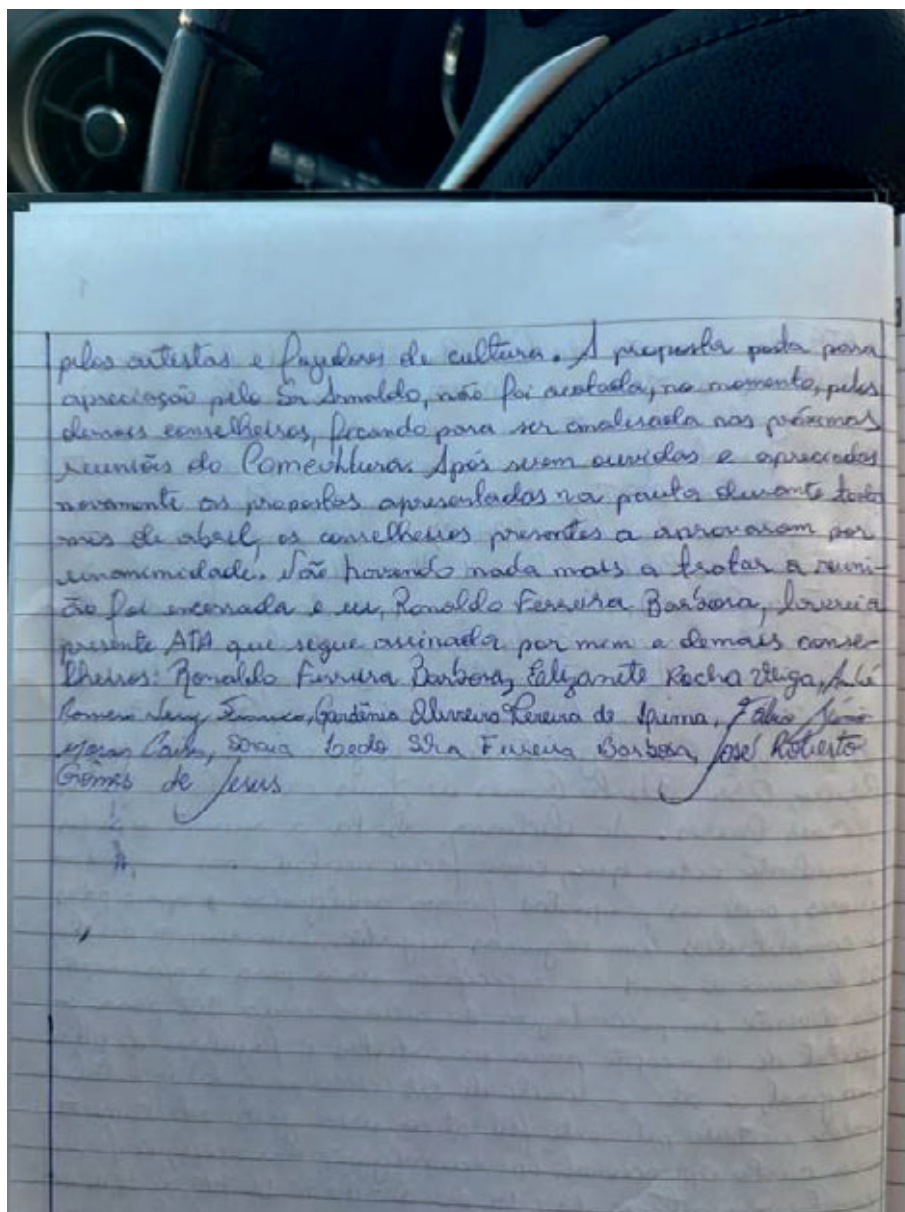 pelos artistas e fazedores de cultura. A proposta posta para
apreciação pelo Sr Arnaldo, não foi acatada, no momento, pelos
demais conselheiros, ficando para ser analisada nas próximas
reuniões do Comcultura. Após serem ouvidas e apreciadas
novamente as propostas apresentadas na pauta durante todo
mês de abril, os conselheiros presentes a aprovaram por
unanimidade. Não havendo nada mais a tratar a reuni-
ão foi encerrada e eu, Ronaldo Ferreira Barbosa, lavrei a
presente ATA que segue assinada por mim e demais conse-
lheiros: Ronaldo Ferreira Barbosa, Elizanete Rocha Veiga,
Romero Franco, Gardênia Oliveira Pereira de Fábio Júnio
Soraia Ledo Ferreira Barbosa, José Roberto
Gomes de Jesus